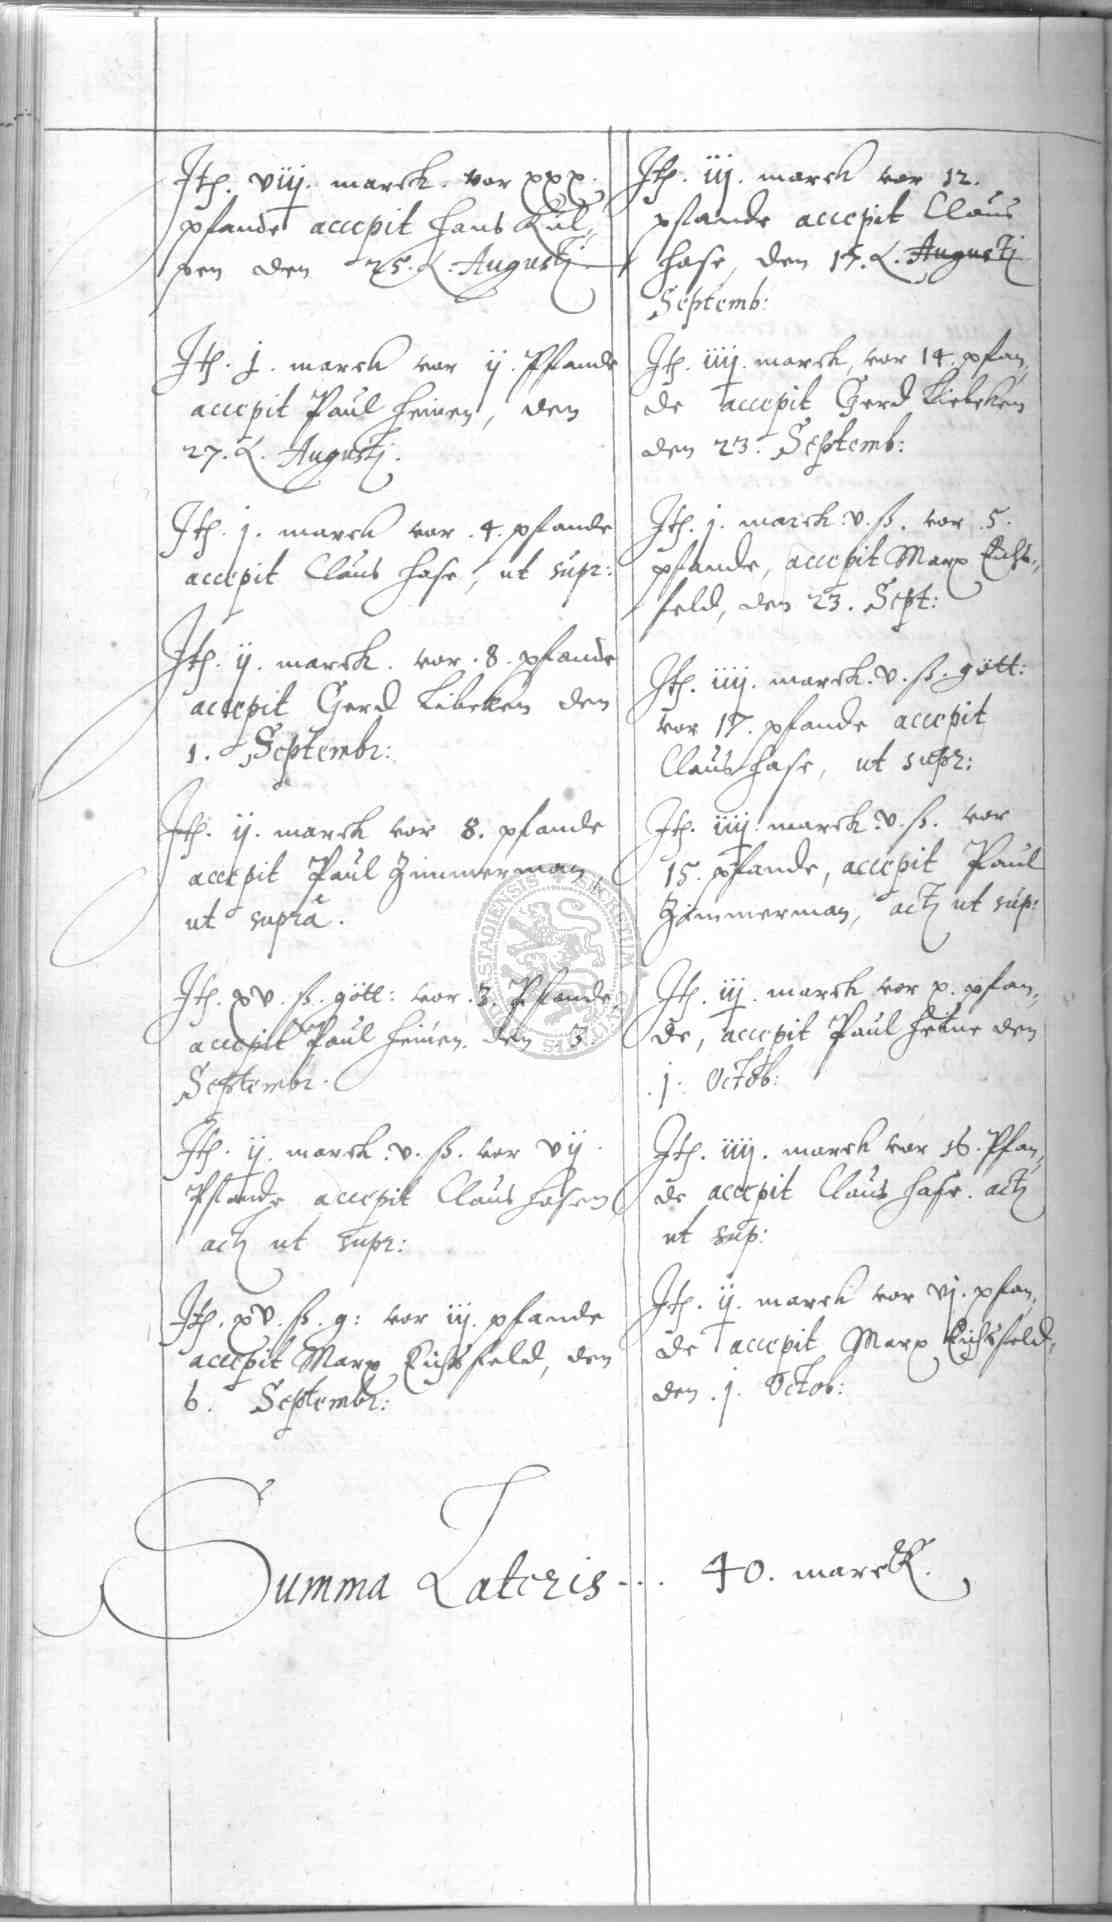 Jtem. viij. marck. vor xxx.
pfande accepit Hans Kül,
pen den 25. L. Augustj
Jtem. j. marck vor ij. Pfande
accepit Paul Heinen, den
27. L. Augustj.
Jtem. j. marck vor .4. pfande
accepit Claus Hase, ut supr:
Jtem. ij. marck. vor .8. pfande
accepit Gerd Libeken den
1. Septembr:
Jtem. ij. marck vor 8. pfande
accepit Paul Zimmerman,
ut supra.
Jtem. xv. ß. gött: vor .3. Pfande
accepit Paul Heinen. den 3
Septembr.
Jtem. ij. marck. v. ß. vor vij.
Pfande accepit Claus Hasen
act ut supr:
Jtem. xv. ß. g: vor iij. pfande
accepit Marx Eichsfeld, den
6. Septembr:
Jtem. iij. marck vor 12.
pfande accepit Claus
Hase, den 15. L. Augustj
Septemb:
Jtem. iiij. marck, vor 14. pfan,
de accepit Gerd Liebeken
den 23. Septemb:
Jtem. j. marck. v. ß. vor .5.
pfande, accepit Marx Eichs,
feld, den 23. Sept:
Jtem. iiij. marck. v. ß. gött:
vor 17. pfande accepit
Claus Hase, ut supr:
Jtem. iiij. marck. v. ß. vor
15. pfande, accepit Paul
Zimmerman, act ut sup:
Jtem. iij. marck vor x. pfan,
de, accepit Paul Heine den
.j. Octob:
Jtem. iiij. marck vor 16. Pfan,
de accepit Claus Hase. act
ut sup:
Jtem. ij. marck vor vj. pfan,
de accepit Marx Eichsfeld,
den .j. Octob:
Summa Lateris ... 40. marck.
SECRETUM